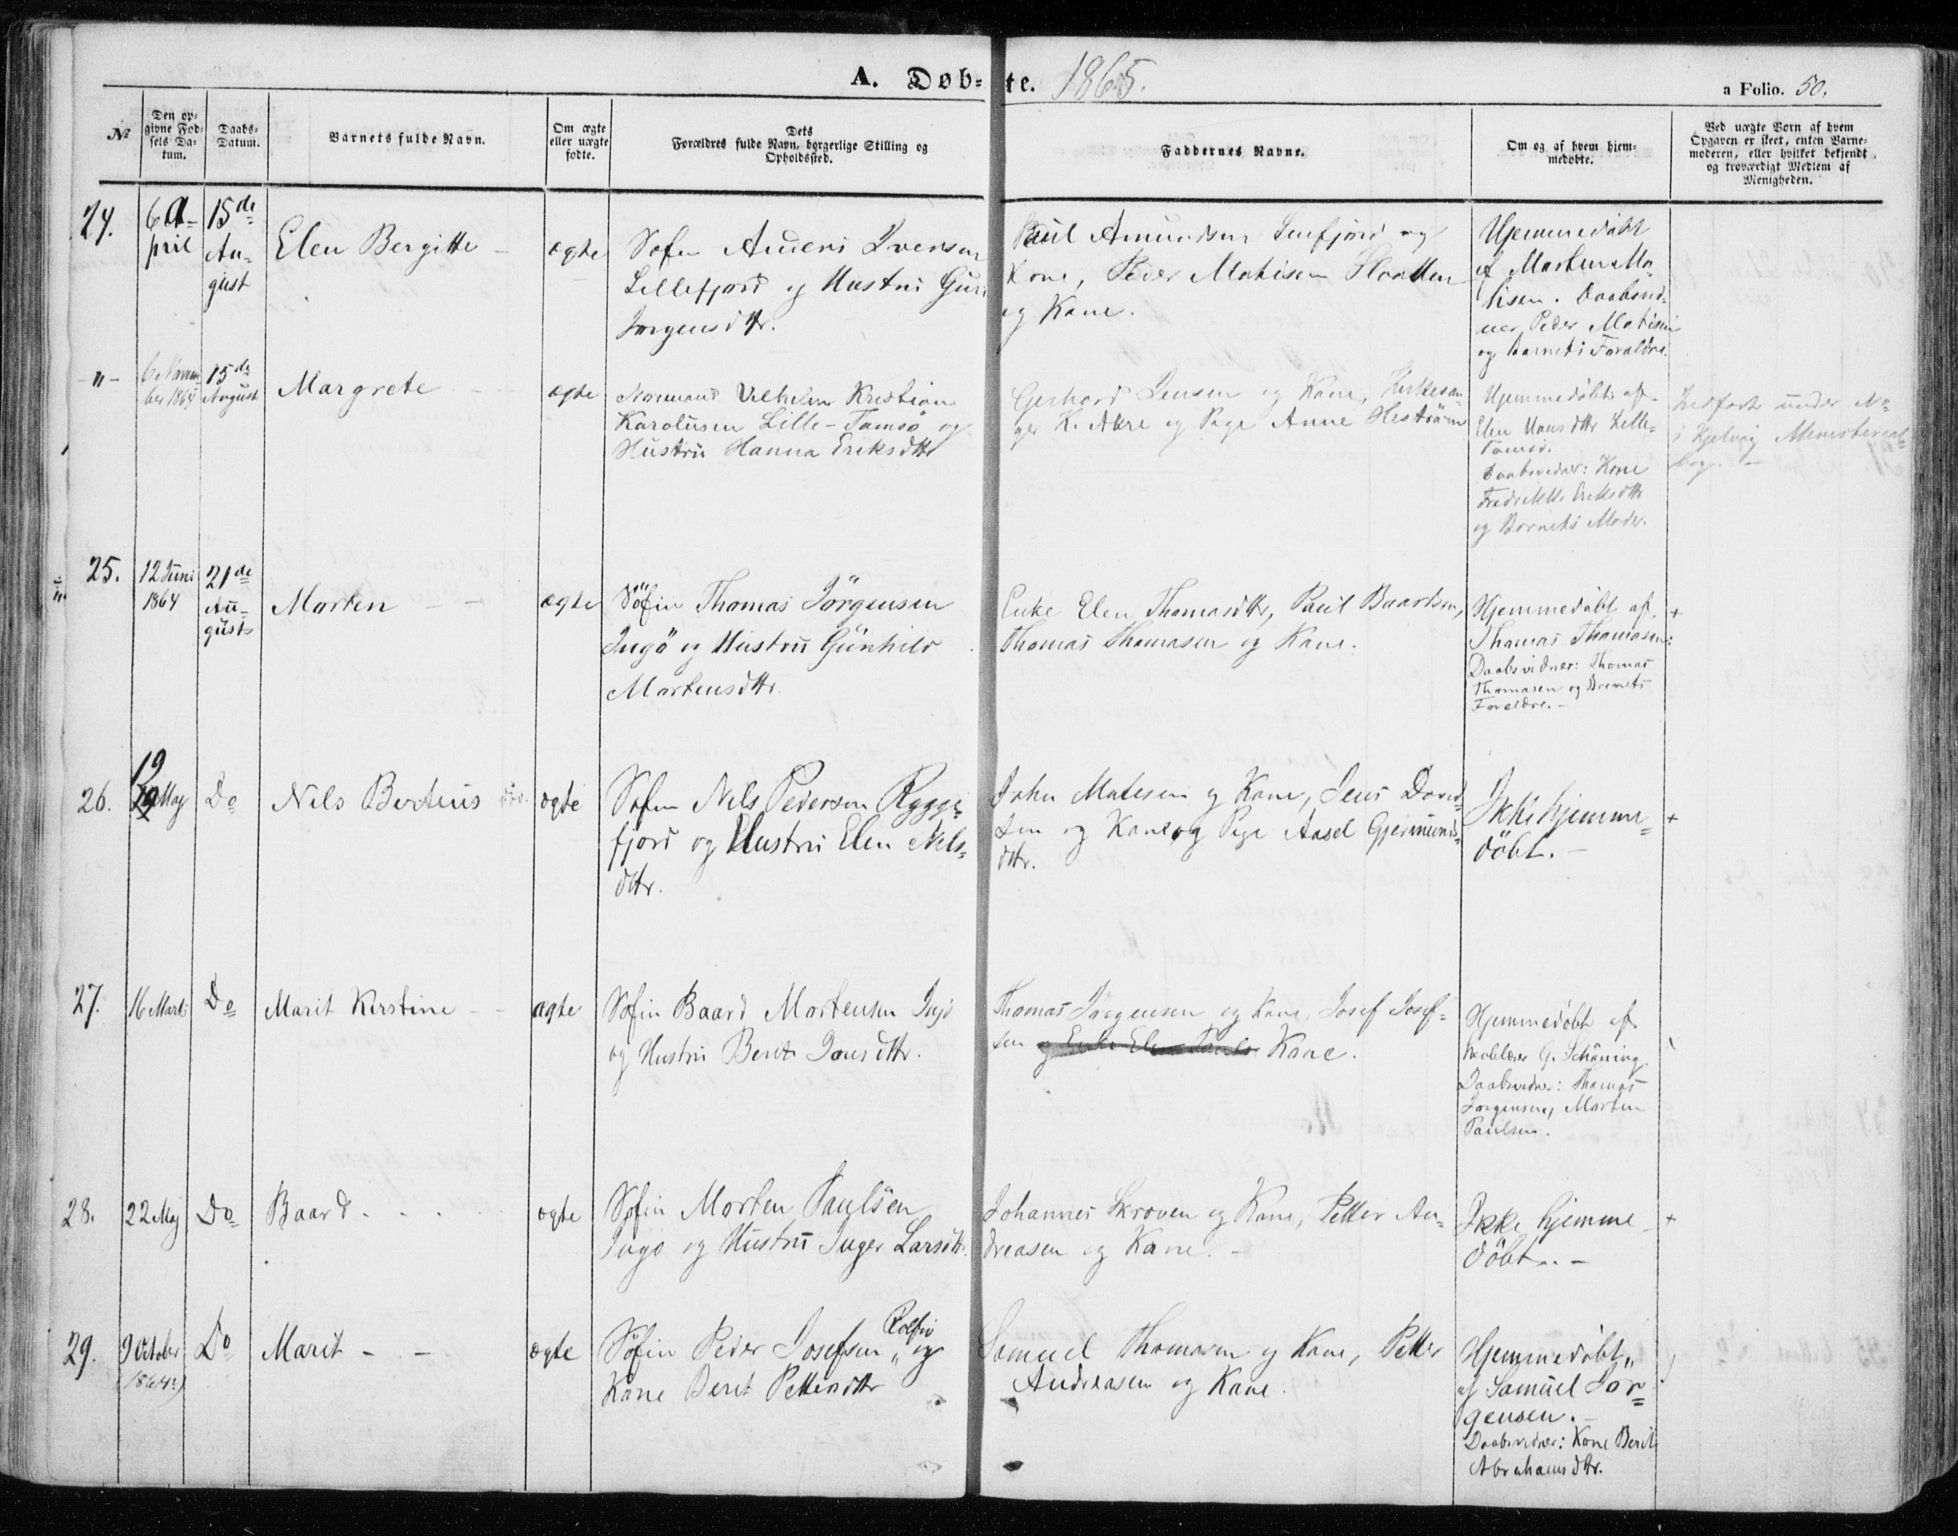 A. Døb-te. 1865.
a Folio. 50.
№
Den op-
givne Fød-
sels Da-
tum.
Daabs-
Datum.
Barnets fulde Navn.
Om ægte
eller uægte
fødte.
Dets
Forældres fulde Navn, borgerlige Stilling og
Opholdssted.
Faddernes Navne.
Om og af hvem hjem-
medøbte.
Ved uægte Børn af hvem
Opgaven er skeet, enten Barne-
moderen, eller hvilket bekjendt
og troværdigt Medlem af
Menigheden.
24.
6 A-
pril
15de
Au-
gust
Elen Bergitte -
ægte
Søfin Anders Iversen
Lillefjord og Hustru Guri
Jørgensdtr.
Paul Amundsen Snefjord og
Kone, Peder Mathisen Slaatten
og Kone.
Hjemmedøbt
af Morten Ma-
thisen. Daabsvid-
ner Peder Mathisen
og barnets Forældre.
-"-
6 Novem-
ber 1864
15de
August
Margrete - -
ægte
Normand Vilhelm Kristian
Karolusen Lille-Tamsø og
Hustru Hanna Eriksdtr
Gerhard Jensen og Kone, Kirkesan-
ger K. Akre og Pige Anne Hestnæs
Hjemmedøbt af
Elen Hansdtr Lille-
Tamsø.
Daabsvidner: Kone
Fredrikke Eriksdtr
og Barnets Moder.
Indført under No
i Kjelvig Ministerial-
bog. -
25.
12 Juni
1864
21de
Au-
gust
Morten - -
ægte
Søfin Thomas Jørgensen
Ingø og Hustru Gunhild
Mortensdtr.
Enke Elen Thomasdtr, Paul Baardsen,
Thomas Thomasen og Kone.
Hjemmedøbt af
Thomas Thomasen:
Daabsvidner: Thomas
Thomasen og Barnets
Forældre. -
+
26.
19
Maj
Do
Nils Berteus
ægte
Søfin Nils Pedersen Rygge-
fjord og Hustru Elen Nils-
dtr.
John Matesen og Kone, Jens David-
sen og Kone og Pige Aasel Gjermunds-
dtr.
Ikke hjemme-
døbt. -
+
27.
16 Marts
Do
Marit Kirstine - -
ægte
Søfin Baard Mortensen Ingø
og Hustru Beret Jonsdtr.
Thomas Jørgensen og Kone, Josef Josef-
sen og Enke Elen Pauls- Kone.
Hjemmedøbt af
Skolelærer G. Schöning.
Daabsvidner: Thomas
Jørgensen, Morten
Paulsen.
28.
22 Maj
Do
Baard - - -
ægte
Søfin Morten Paulsen
Ingø og Hustru Inger Larsdtr.
Johannes Skroven og Kone, Petter An-
dreasen og Kone. -
Ikke hjemme-
døbt. -
+
29.
9 October
(1864)
Do
Marit - -
ægte
Søfin Peder Josefsen Rolfsø og
Kone Beret Pettersdtr
Samuel Thomasen og Kone, Petter
Andreasen og Kone.
Hjemmedøbt
af Samuel Jør-
gensen. -
Daabsvidner: Kone Berit
Abrahamsdtr.